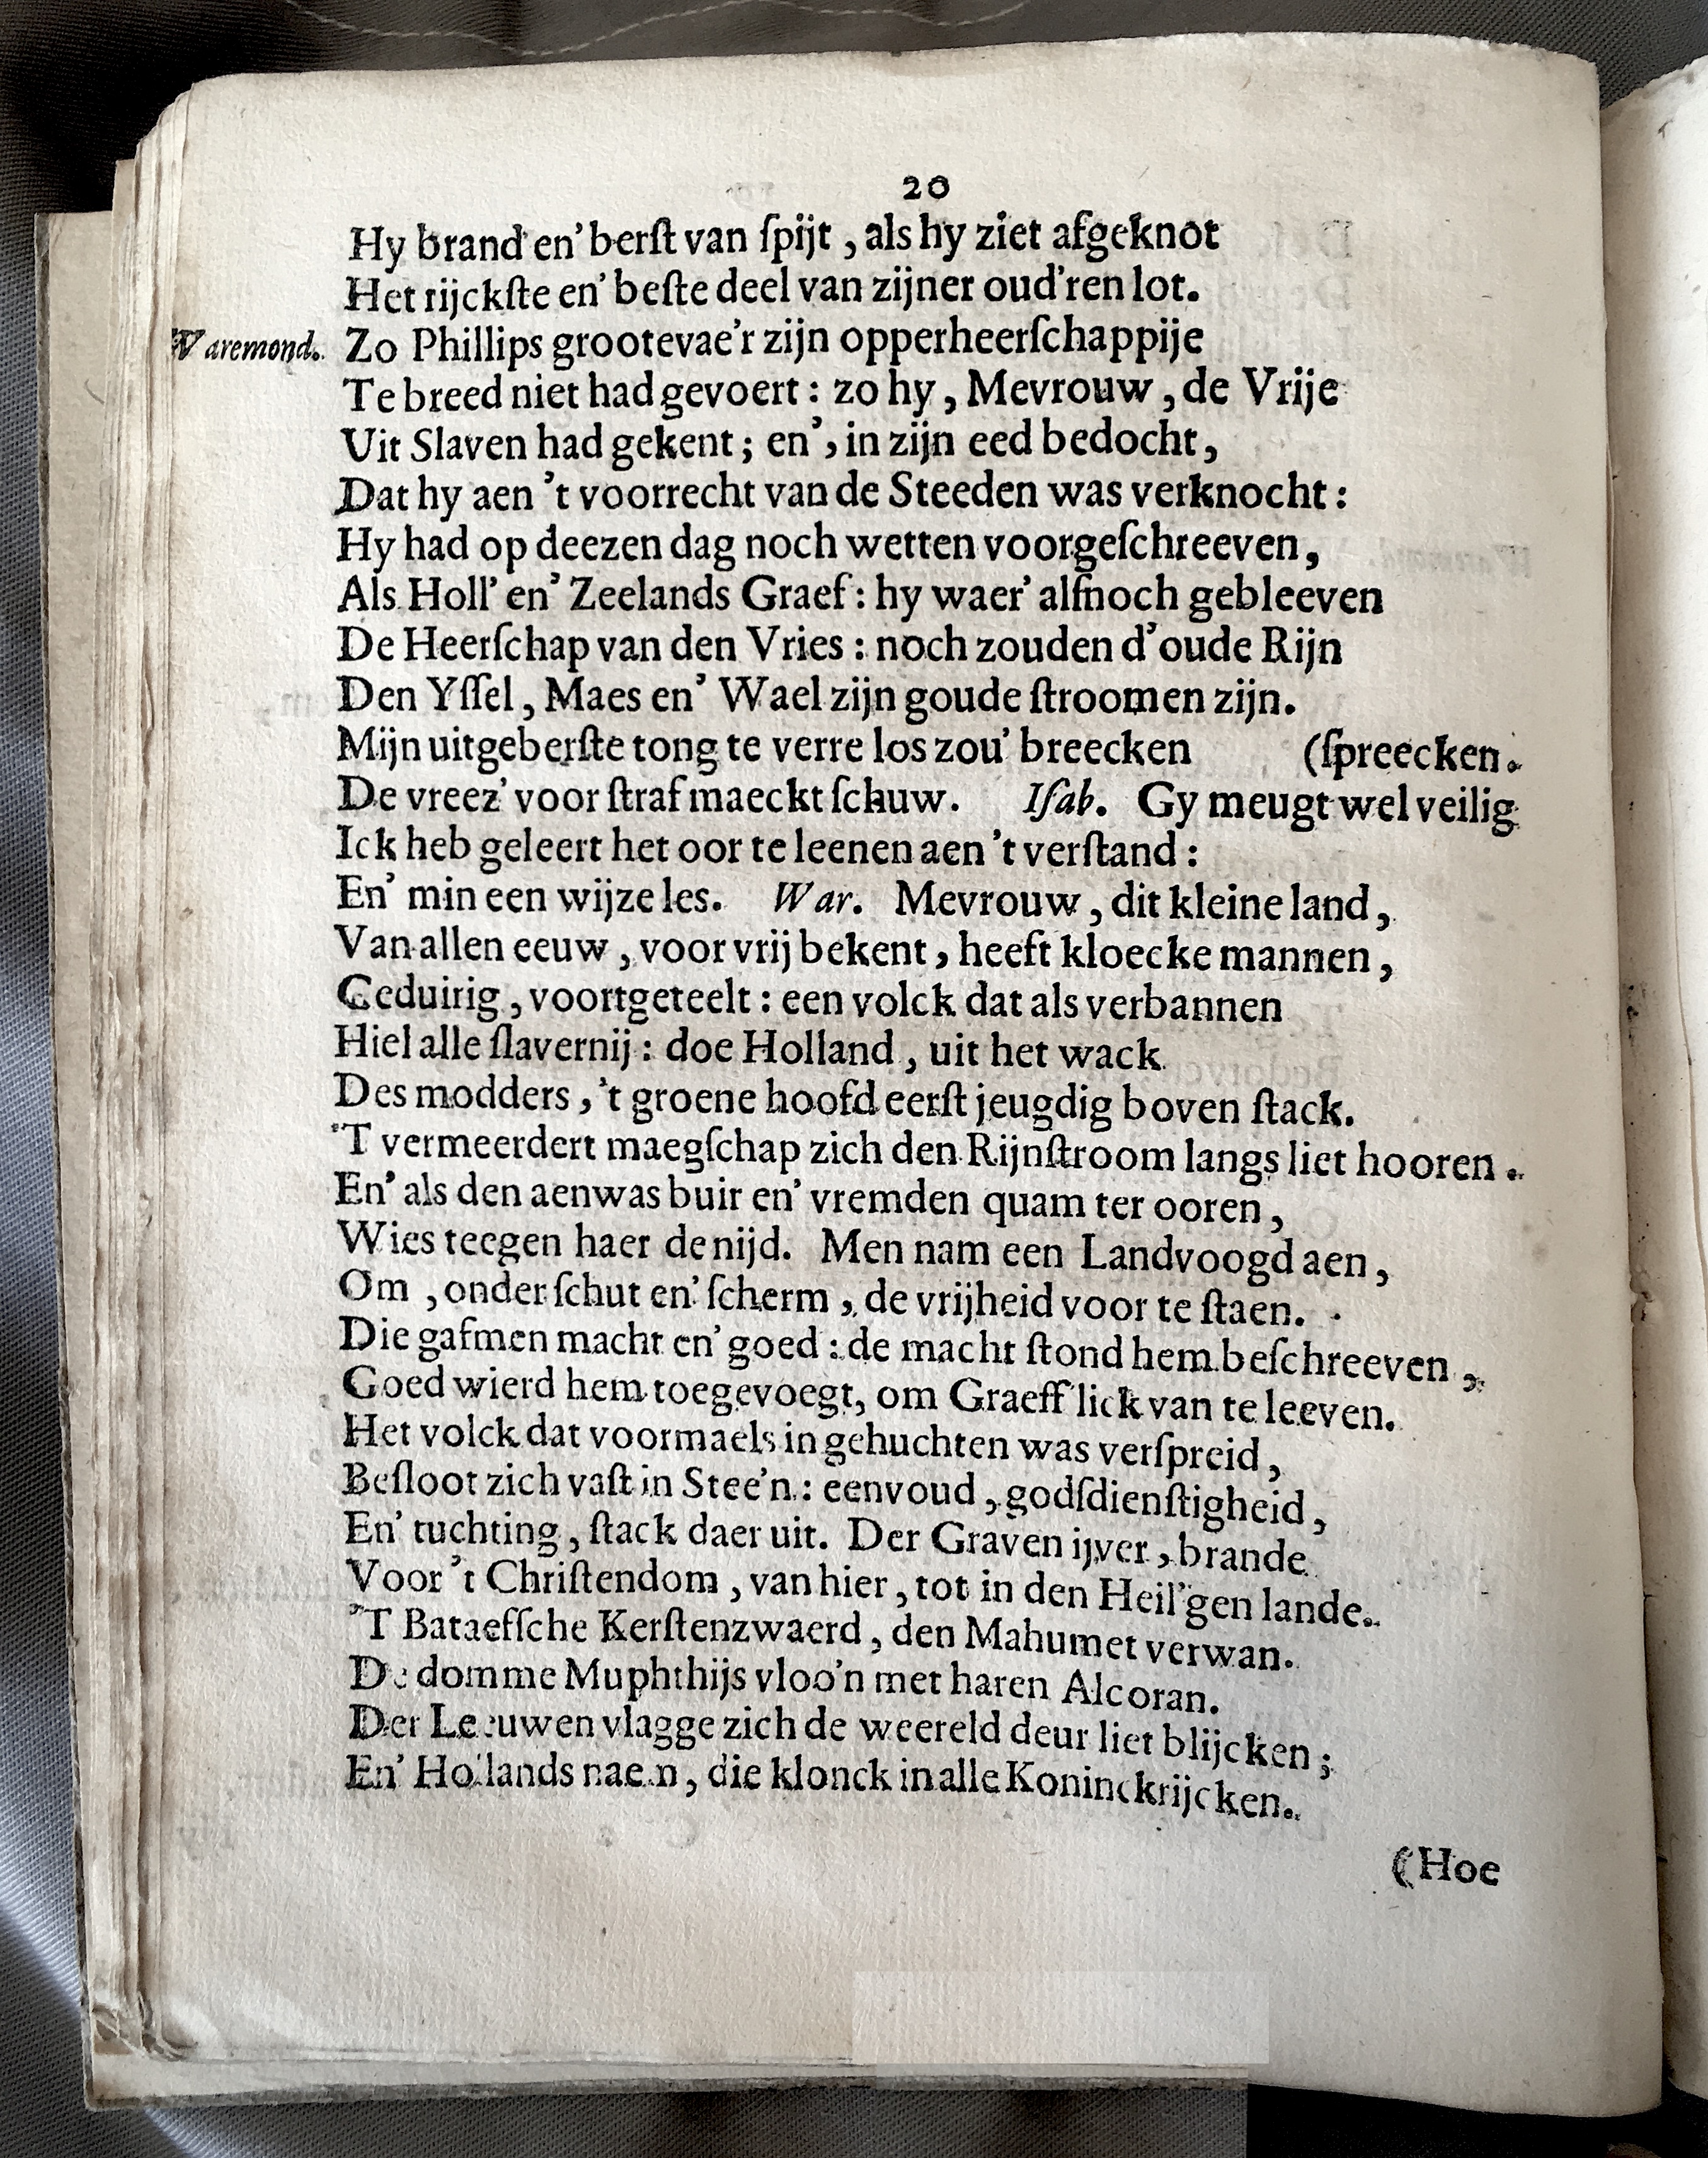 20
Hy brand en' berſt van ſpijt , als hy ziet afgeknot
Het rijckſte en' beſte deel van zijner oud'ren lot.
Waremond. Zo Phillips grootevae'r zijn opperheerſchappije
Te breed niet had gevoert : zo hy , Mevrouw , de Vrije
Uit Slaven had gekent ; en' , in zijn eed bedocht ,
Dat hy aen 't voorrecht van de Steeden was verknocht :
Hy had op deezen dag noch wetten voorgeſchreeven ,
Als Holl' en' Zeelands Graef : hy waer' alſnoch gebleeven
De Heerſchap van den Vries : noch zouden d'oude Rijn
Den Yſſel , Maes en' Wael zijn goude ſtroomen zijn.
Mijn uitgeberſte tong te verre los zou' breecken (ſpreecken.
De vreez' voor ſtraf maeckt ſchuw. Iſab. Gy meugt wel veilig
Ick heb geleert het oor te leenen aen 't verſtand :
En' min een wijze les. War. Mevrouw , dit kleine land ,
Van allen eeuw , voor vrij bekent , heeft kloecke mannen ,
Geduirig , voortgeteelt : een volck dat als verbannen
Hiel alle ſlavernij : doe Holland , uit het wack
Des modders , 't groene hoofd eerſt jeugdig boven ſtack.
'T vermeerdert maegſchap zich den Rijnſtroom langs liet hooren .
En' als den aenwas buir en' vremden quam ter ooren ,
Wies teegen haer de nijd. Men nam een Landvoogd aen ,
Om , onder ſchut en' ſcherm , de vrijheid voor te ſtaen.
Die gafmen macht en' goed : de macht ſtond hem beſchreeven ,
Goed wierd hem toegevoegt, om Graeff'lick van te leeven.
Het volck dat voormaels in gehuchten was verſpreid ,
Beſloot zich vaſt in Stee'n : eenvoud , godſdienſtigheid ,
En' tuchting , ſtack daer uit. Der Graven ijver , brande
Voor 't Chriſtendom , van hier , tot in den Heil'gen lande.
'T Bataefſche Kerſtenzwaerd , den Mahumet verwan.
De domme Muphthijs vloo'n met haren Alcoran.
Der Leeuwen vlagge zich de weereld deur liet blijcken ;
En' Hollands naem , die klonck in alle Koninckrijcken.
(Hoe